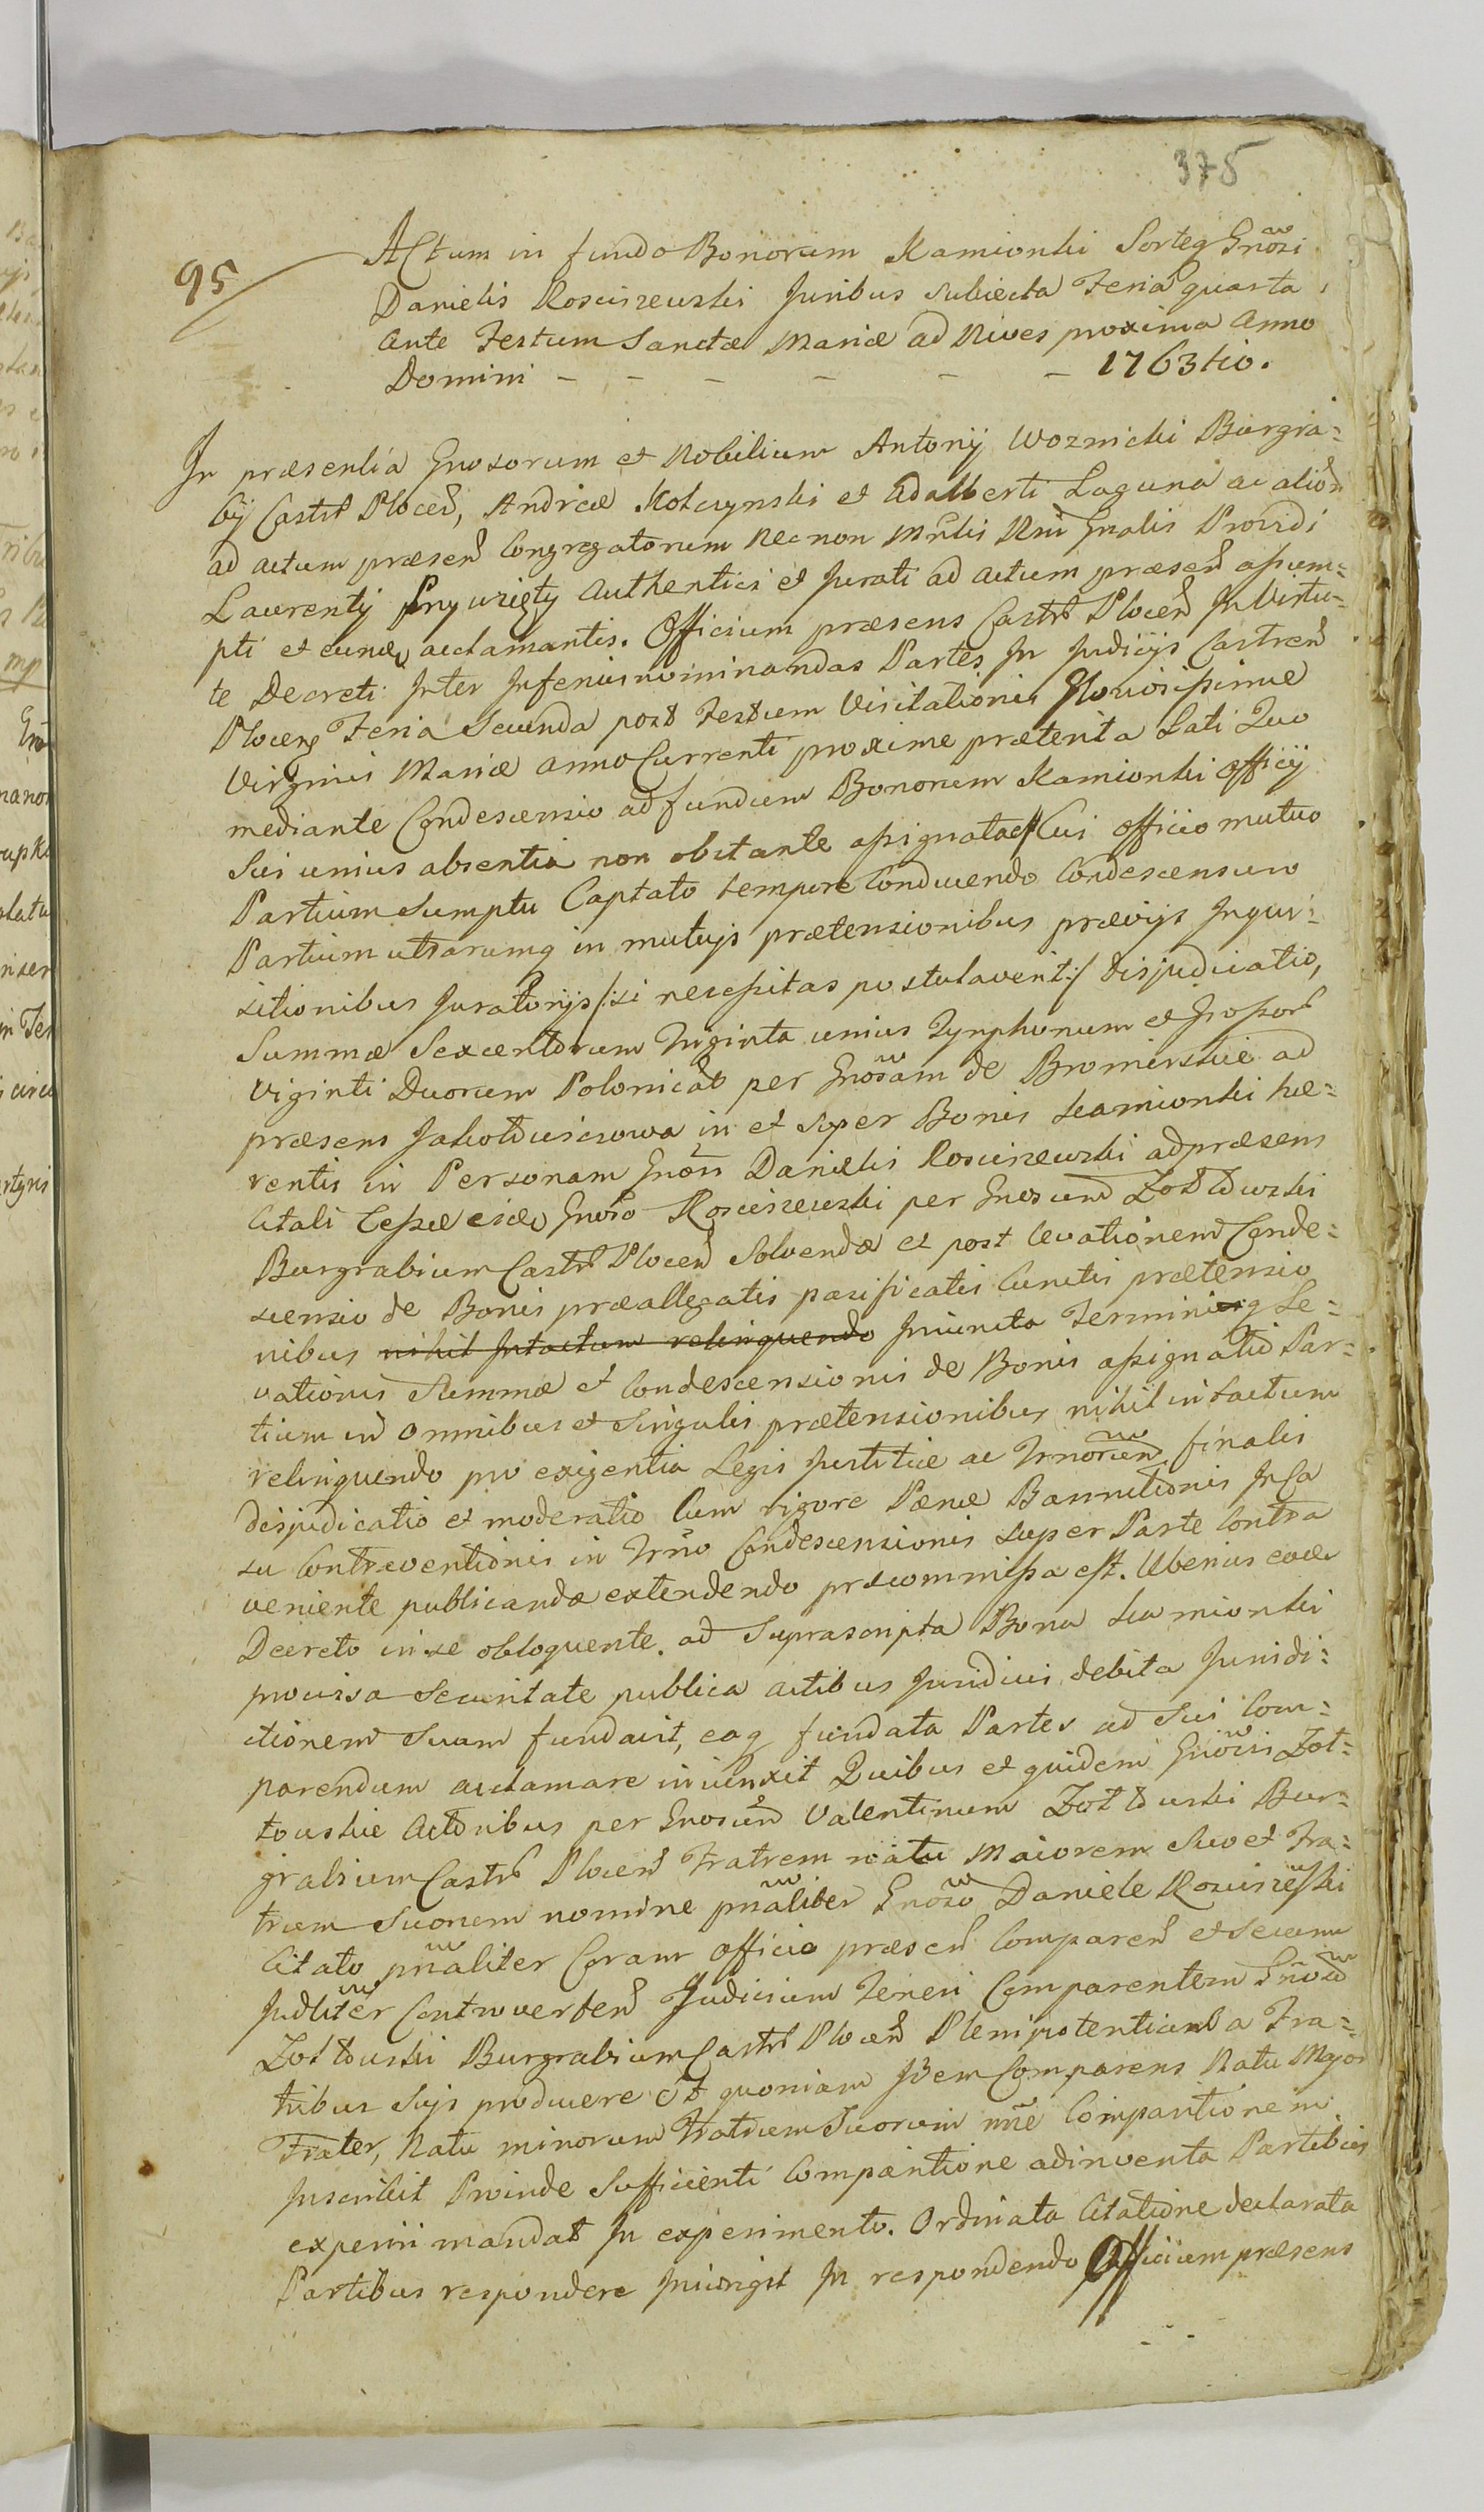 375
95
Actum in fundo Bonorum Kamionki Sorteq Gnosi
Danielis Rosciszewski Juribus subiecta Feria quarta
ante Festum Sanctæ Mariæ ad Nives proxima Anno
Domini - - - - - - 1763tio.
In præsentia Gnosorum et Nobilium Antonij Woznicki Burgra=
bij Castr Plocen, Andreæ Kolczynski et Adalberti Laguna ac alion
ad actum præsen Congregatorum Necnon Mnlis Rni Gnalis Providi
Laurentij Authentici et Jurati ad actum præsen assum=
pti et eunde acclamantis. Officium præsens Castr Plocen In Virtu=
te Decreti Inter Inferius nominandas Partes In Judicijs Castren
Plocens Feria Secunda post Festum Visitationis Gloriosissimæ
Virginis Mariæ anno Currenti proxime præterita Lati Quo
mediante Condescensio ad fundum Bonorum Kamionki officij
sui unius absentia non obstante assignata est Cui officio mutuo
Partium Sumptu Captato tempore Conducendo Condescensuro
Partium utrarumq in mutuis prætensionibus prævijs Inqui=
sitionibus Juratorijs /:si necessitas postulaverit:/ disjudicatio,
Summæ Sexcentorum Triginta unius Tynphonum et Grossor
viginti Duorum Polonical per Gnosam de Bromirskie ad
præsens Jakolduszowa in et super Bonis Kamionki hæ=
rentis in Personam Gnosi Danielis Rosciszewski ad præsens
Citati Cessæ eide Gnoso Rosciszewski per Gnosum Zołtowski
Burgrabium Castr Plocen Solvendæ et post levationem Conde=
scensio de Bonis præallegatis pacificatis Cunctis prætensio
nibus nihil Intactum relinquendo Iniuncta Terminiq Le=
vationis Summæ et Condescensionis de Bonis assignatio Par=
tium in omnibus et singulis prætensionibus nihil intactum
relinquendo pro exigentia Legis Justitiæ ac Trnorum finalis
disjudicatio et moderatio Cum rigore Pænæ Bannitionis In Ca
su Contraventionis in Trno Condescensionis super Parte Contra
veniente publicandæ extendendo præcommissa est. Uberius eode
Decreto in se obloquente. ad suprascripta Bona Kamionki
provisa securitate publica actibus Juridicis debita Jurisdi=
ctionem suam fundavit, eaq fundata Partes ad sui Com=
parendum acclamare iniunxit Quibus et quidem Gnosis Zoł=
towskie Actoribus per Gnosum Valentinum Zołtowski Bur=
grabium Castr Plocen Fratrem natu Maiorem suo et Fra=
trum suorum nomine pnaliter Gnoso Daniele Rosciszewski
Citato pnaliter Coram officio præsen Comparen et secum
Judliter Controverten Judicium Teneri Comparentem Gnosum
Zołtowski Burgrabium Castr Plocen Plenipotentiam a Fra=
tribus suis producere Et quoniam Idem Comparens Natu Major
Frater, Natu minorum Fratrum Suorum nne Comparitionem
Inscribit Proinde Sufficienti Comparitione adinventa Partibus
experiri mandat In experimento. Ordinata Citatione declarata
Partibus respondere Iniungit In respondendo Officium præsens